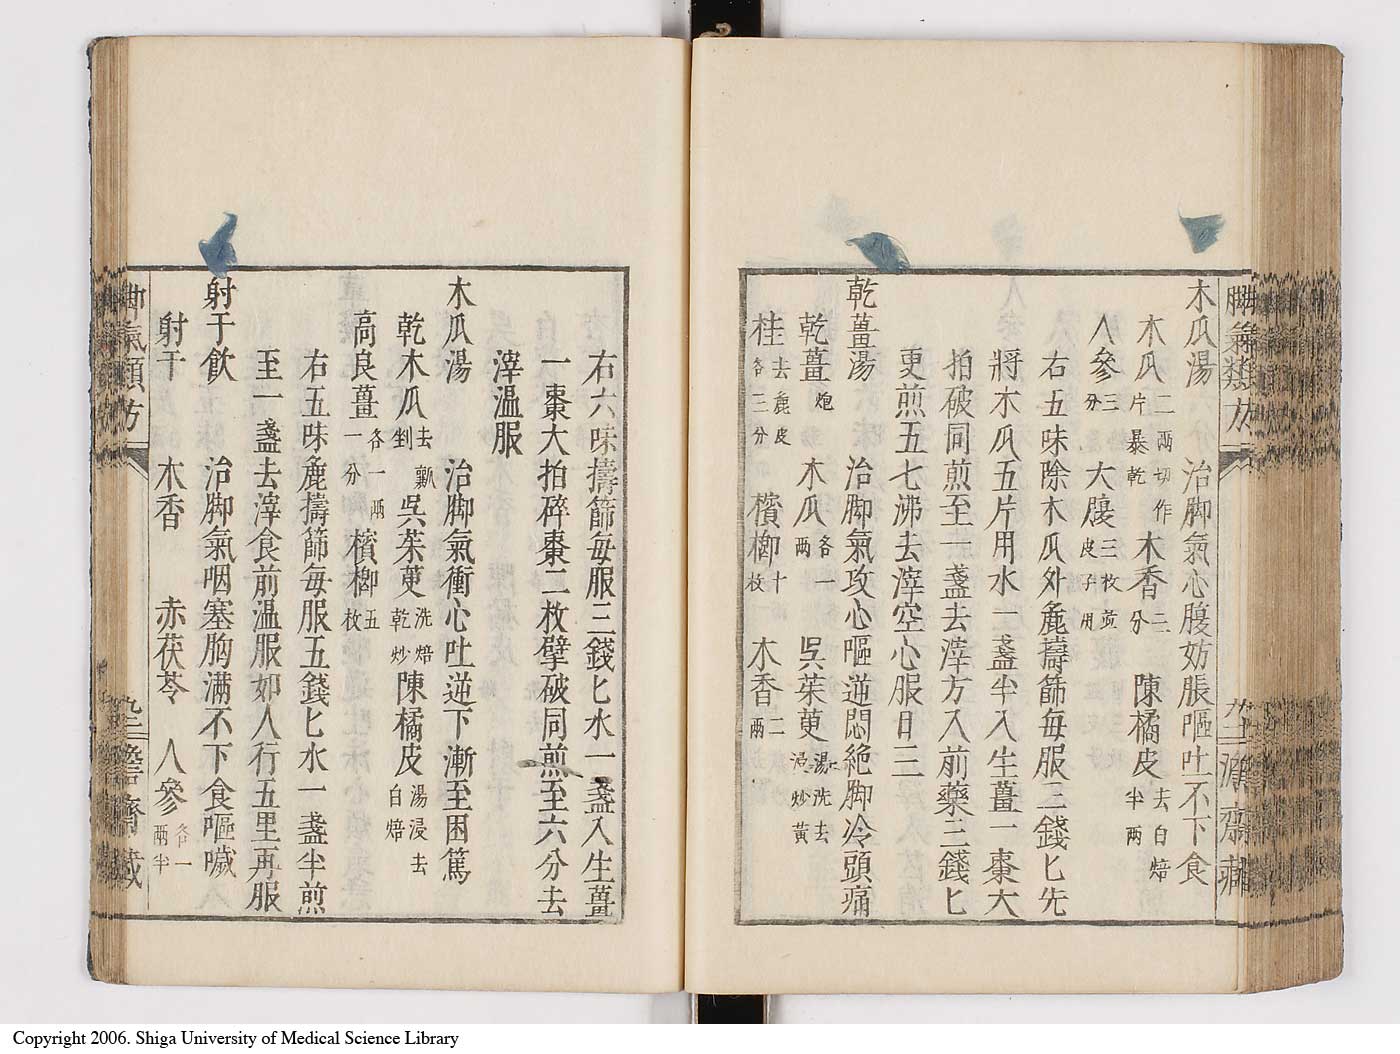 木瓜湯　治脚氣心腹妨脹嘔吐不下食
木瓜二兩切作片暴乾　木香二分　陳橘皮去白焙半兩
人參三分　大腹三枚並皮子用
右五味除木瓜外麁擣篩每服三錢匕先
將木瓜五片用水一盞半入生薑一棗大
拍破同煎至一盞去滓方入前藥三錢匕
更煎五七沸去滓空心服日三
乾薑湯　治脚氣攻心嘔逆悶絶脚冷頭痛
乾薑炮　木瓜各一兩　吳茱萸湯洗去浸炒黃
桂去麁皮各三分　檳榔十枚　木香二兩
右六味擣篩每服三錢匕水一盞入生薑
一棗大拍碎棗二枚擘破同煎至六分去
滓溫服
木瓜湯　治脚氣衝心吐逆下漸至困篤
乾木瓜去瓤剉　吳茱萸洗焙乾炒　陳橘皮湯浸去白焙
高良薑各一兩一分　檳榔五枚
右五味麁擣篩每服五錢匕水一盞半煎
至一盞去滓食前溫服如人行五里再服
射干飲　治脚氣咽塞胸滿不下食嘔噦
射干　木香　赤茯苓　人參各一兩半
Copyright 2006. Shiga University of Medical Science Library